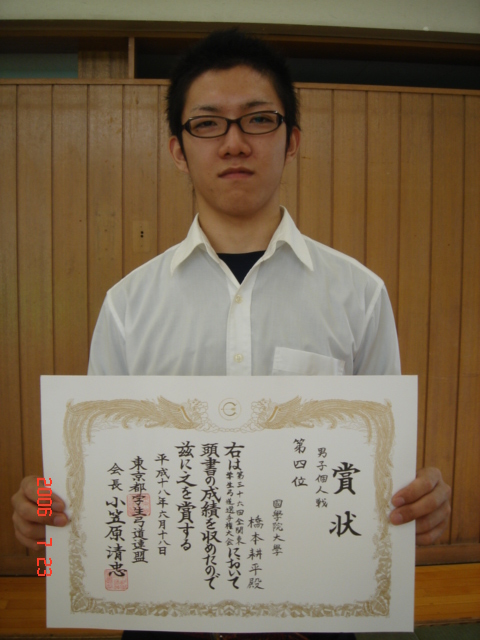 賞状
男子個人戦
第四位
國學院大學
橋本耕平殿
右は第三十六回全関東学生弓道選手権大会において
頭書の成績を収めたので
茲に之を賞する
平成十八年六月十八日
東京都学生弓道連盟
会長 小笠原清忠
2006 7 23